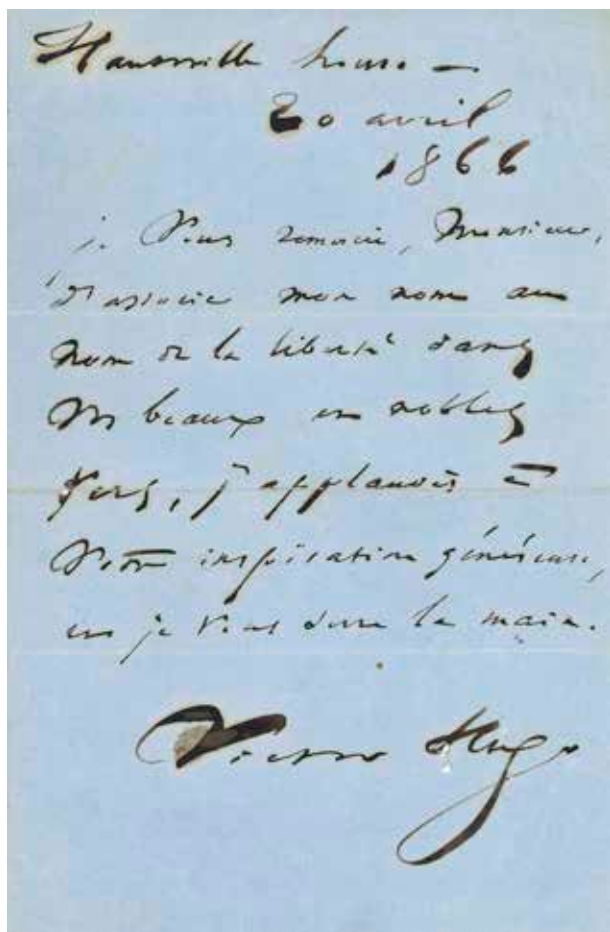 Hauteville house —
20 avril
1866
je vous remercie, Monsieur,
d'associer mon nom au
nom de la liberté dans
vos beaux et nobles
vers, j'applaudis à
votre inspiration généreuse,
et je vous serre la main.
Victor Hugo